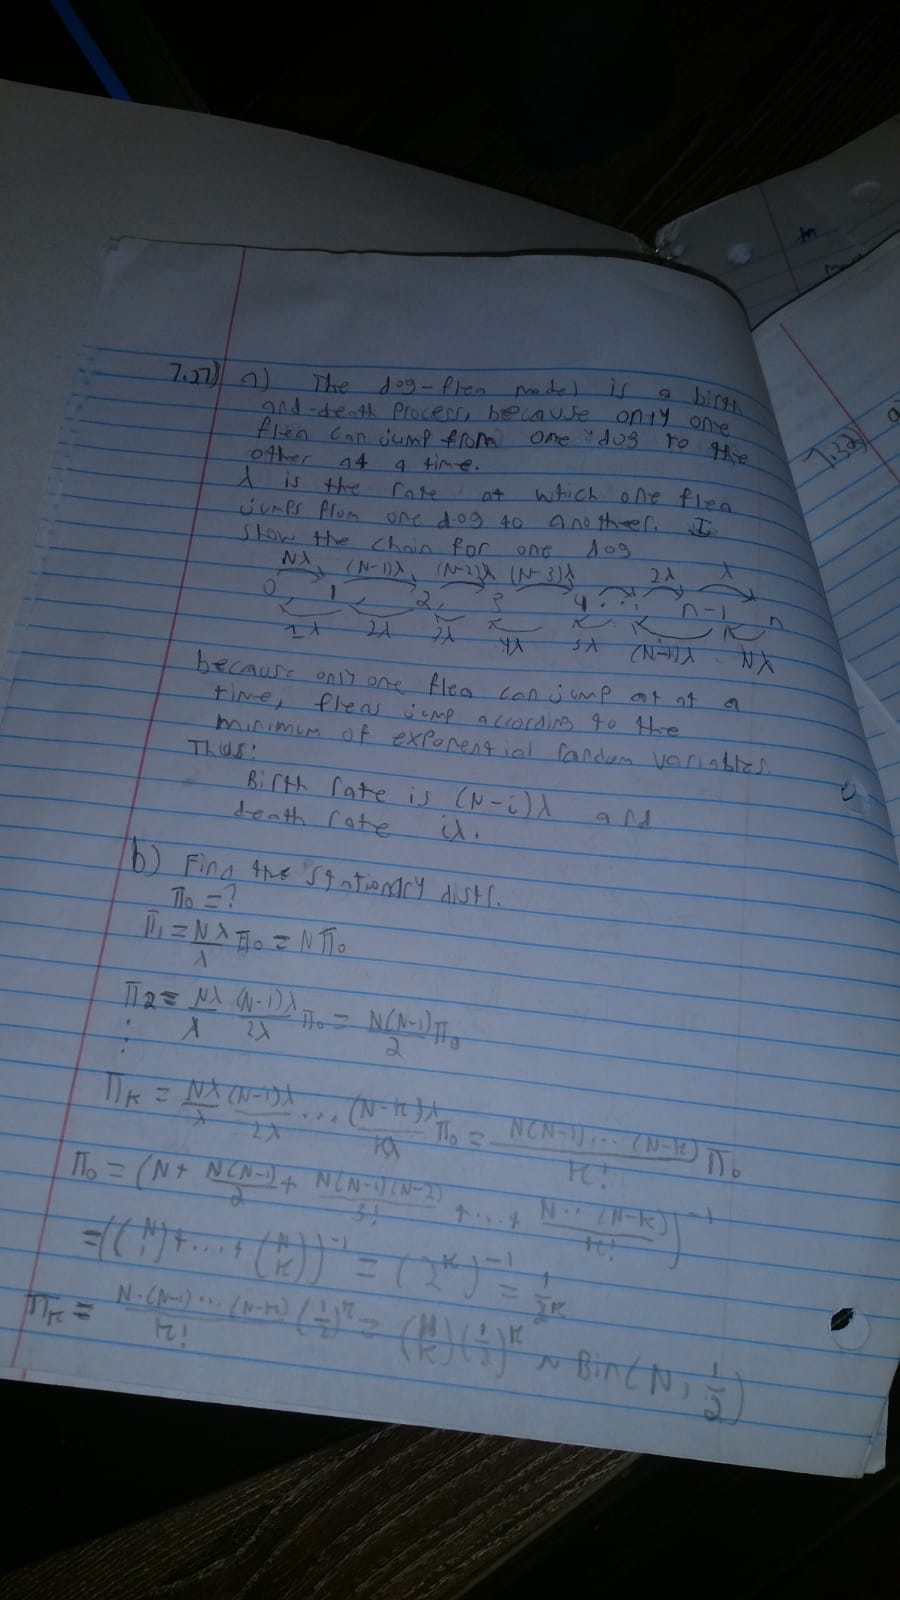 7.27) a) The dog-flea model is a birth
and-death process, because only one
flea can jump from one dog to the
other at a time.
λ is the rate at which one flea
jumps from one dog to another. I
show the chain for one dog
Nλ (N-1)λ (N-2)λ (N-3)λ 2λ λ
0 1 2 3 4 ... n-1 n
1λ 2λ 3λ 4λ 5λ (N-1)λ Nλ
because only one flea can jump at at a
time, fleas jump according to the
minimum of exponential random variables.
Thus:
Birth rate is (N-i)λ and
death rate iλ.
b) Find the stationary distr.
Π₀ = ?
Π₁ = Nλ/λ Π₀ = NΠ₀
Π₂ = Nλ/λ (N-1)λ/2λ Π₀ = N(N-1)/2 Π₀
⋮
Πₖ = Nλ/λ (N-1)λ/2λ ... (N-k)λ/kλ Π₀ = N(N-1)...(N-k)/k! Π₀
Π₀ = (N + N(N-1)/2 + N(N-1)(N-2)/3! + ... + N..(N-k)/k!)⁻¹
= ((N 1) + ... + (N k))⁻¹ = (2ᵏ)⁻¹ = 1/2ᵏ
Πₖ = N·(N-1)...(N-k)/k! (1/2)ᵏ = (N k)(1/2)ᵏ ~ Bin(N, 1/2)
7.22)